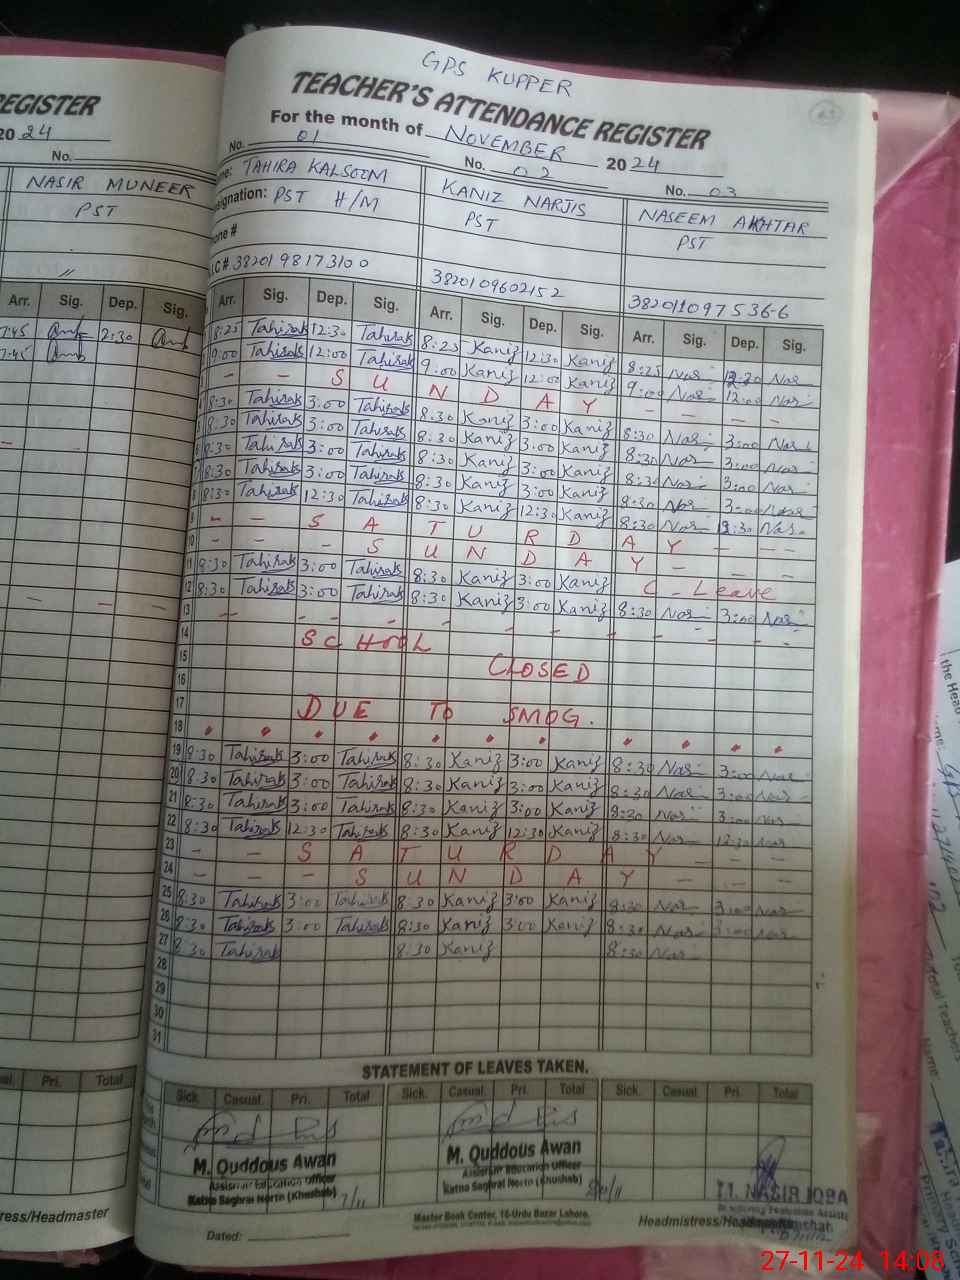 GPS KUPPER
TEACHER'S ATTENDANCE REGISTER
For the month of NOVEMBER 2024
No. 01 No. 02 No. 03
TAHIRA KALSOOM KANIZ NARJIS NASEEM AKHTAR
Designation: PST H/M PST PST
3820198173100 3820109602152
Arr. Sig. Dep. Sig. Arr. Sig. Dep. Sig. Arr. Sig. Dep. Sig.
8:25 Tahirak 12:30 Tahirak 8:25 Kaniz 12:30 Kaniz 8:25 Nas
9:00 Tahirak 12:00 Tahirak 9:00 Kaniz 12:00 Kaniz 9:00 Nas 12:00 Nas
- - S U N D A Y - - - -
8:30 Tahirak 3:00 Tahirak 8:30 Kaniz 3:00 Kaniz 8:30 Nas 3:00 Nas
8:30 Tahirak 3:00 Tahirak 8:30 Kaniz 3:00 Kaniz 8:30 Nas 3:00 Nas
8:30 Tahirak 3:00 Tahirak 8:30 Kaniz 3:00 Kaniz 8:30 Nas 3:00 Nas
8:30 Tahirak 3:00 Tahirak 8:30 Kaniz 3:00 Kaniz 8:30 Nas 3:00 Nas
8 8:30 Tahirak 12:30 Tahirak 8:30 Kaniz 12:30 Kaniz 8:30 Nas Nas
9 - - S A T U R D A Y - - -
10 - - - S U N D A Y - - -
11 8:30 Tahirak 3:00 Tahirak 8:30 Kaniz 3:00 Kaniz C - Leave
12 8:30 Tahirak 3:00 Tahirak 8:30 Kaniz 3:00 Kaniz 8:30 Nas 3:00 Nas
13
14 SCHOOL
15 CLOSED
16
17 DUE TO SMOG.
18
19 8:30 Tahirak 3:00 Tahirak 8:30 Kaniz 3:00 Kaniz 8:30 Nas 3:00 Nas
20 8:30 Tahirak 3:00 Tahirak 8:30 Kaniz 3:00 Kaniz 8:30 Nas 3:00 Nas
21 8:30 Tahirak 3:00 Tahirak 8:30 Kaniz 3:00 Kaniz 8:30 Nas 3:00 Nas
22 8:30 Tahirak 12:30 Tahirak 8:30 Kaniz 12:30 Kaniz 8:30 Nas 12:30 Nas
23 - - S A T U R D A Y - - -
24 - - - S U N D A Y - - -
25 8:30 Tahirak 3:00 Tahirak 8:30 Kaniz 3:00 Kaniz 8:30 Nas 3:00 Nas
26 8:30 Tahirak 3:00 Tahirak 8:30 Kaniz 3:00 Kaniz 8:30 Nas 3:00 Nas
27 8:30 Tahirak 8:30 Kaniz 8:30 Nas
28
29
30
31
STATEMENT OF LEAVES TAKEN.
Sick. Casual. Pri. Total Sick. Casual Pri. Total Sick. Casual Pri. Total
M. Quddous Awan M. Quddous Awan
Assistant Education Officer Assistant Education Officer
Katha Saghral North (Khushab) Katha Saghral North (Khushab)
NASIR IQBA
Master Book Center, 16-Urdu Bazar Lahore.
Dated:
REGISTER
2024
No.
NASIR MUNEER
PST
Arr. Sig. Dep. Sig.
7:45 2:30
7:45
Pri. Total
ress/Headmaster
the Head
Total Teachers
Name
27-11-24 14:08